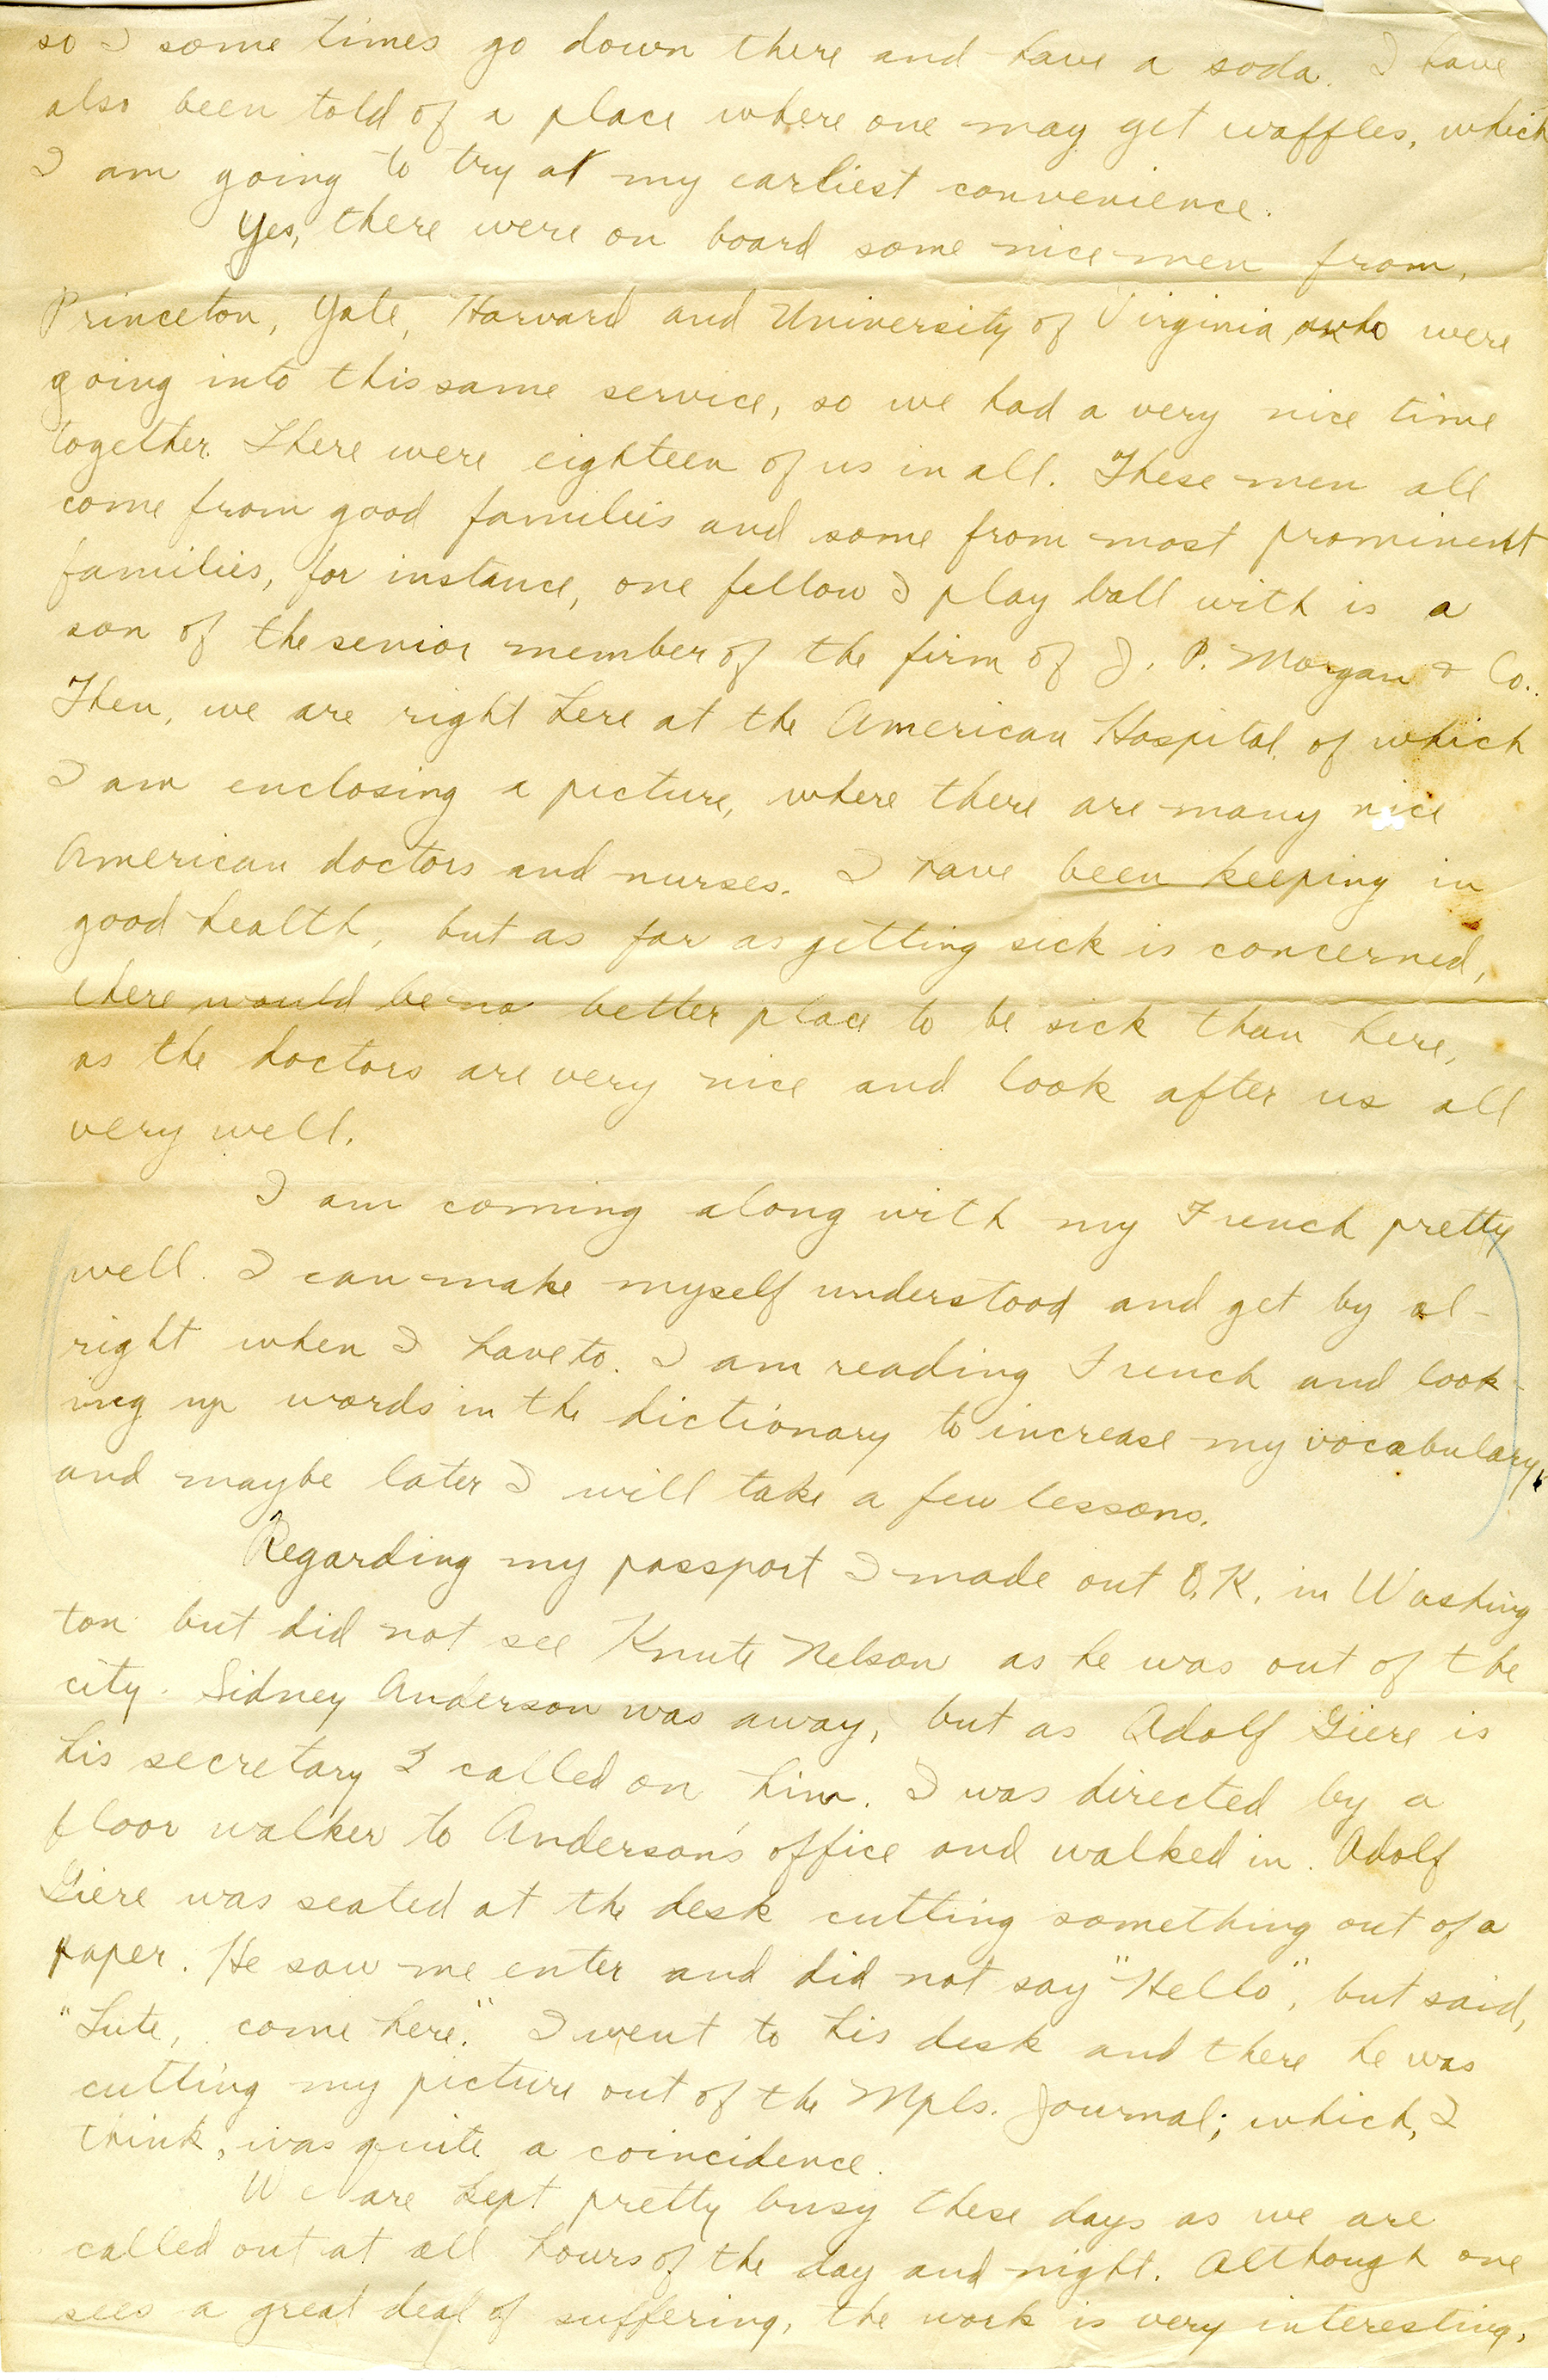 so I some times go down there and have a soda. I have
also been told of a place where one may get waffles, which
I am going to try at my earliest convenience.
Yes, there were on board some nice men from,
Princeton, Yale, Harvard and University of Virginia, who were
going into this same service, so we had a very nice time
together. There were eighteen of us in all. These men all
come from good families and some from most prominent
families, for instance, one fellow I play ball with is a
son of the senior member of the firm of J. P. Morgan & Co..
Then, we are right here at the American Hospital, of which
I am enclosing a picture, where there are many nice
American doctors and nurses. I have been keeping in
good health, but as far as getting sick is concerned,
there would be no better place to be sick than here,
as the doctors are very nice and look after us all
very well.
I am coming along with my French pretty
well. I can make myself understood and get by al-
right when I have to. I am reading French and look-
ing up words in the dictionary to increase my vocabulary,
and maybe later I will take a few lessons.
Regarding my passport I made out O.K. in Washing
ton but did not see Knute Nelson as he was out of the
city. Sidney Anderson was away, but as Adolf Giere is
his secretary I called on him. I was directed by a
floor walker to Anderson's office and walked in. Adolf
Giere was seated at the desk cutting something out of a
paper. He saw me enter and did not say "Hello", but said,
"Lute, come here." I went to his desk and there he was
cutting my picture out of the Mpls. Journal; which, I
think, was quite a coincidence.
We are kept pretty busy these days as we are
called out at all hours of the day and night. Although one
sees a great deal of suffering, the work is very interesting,